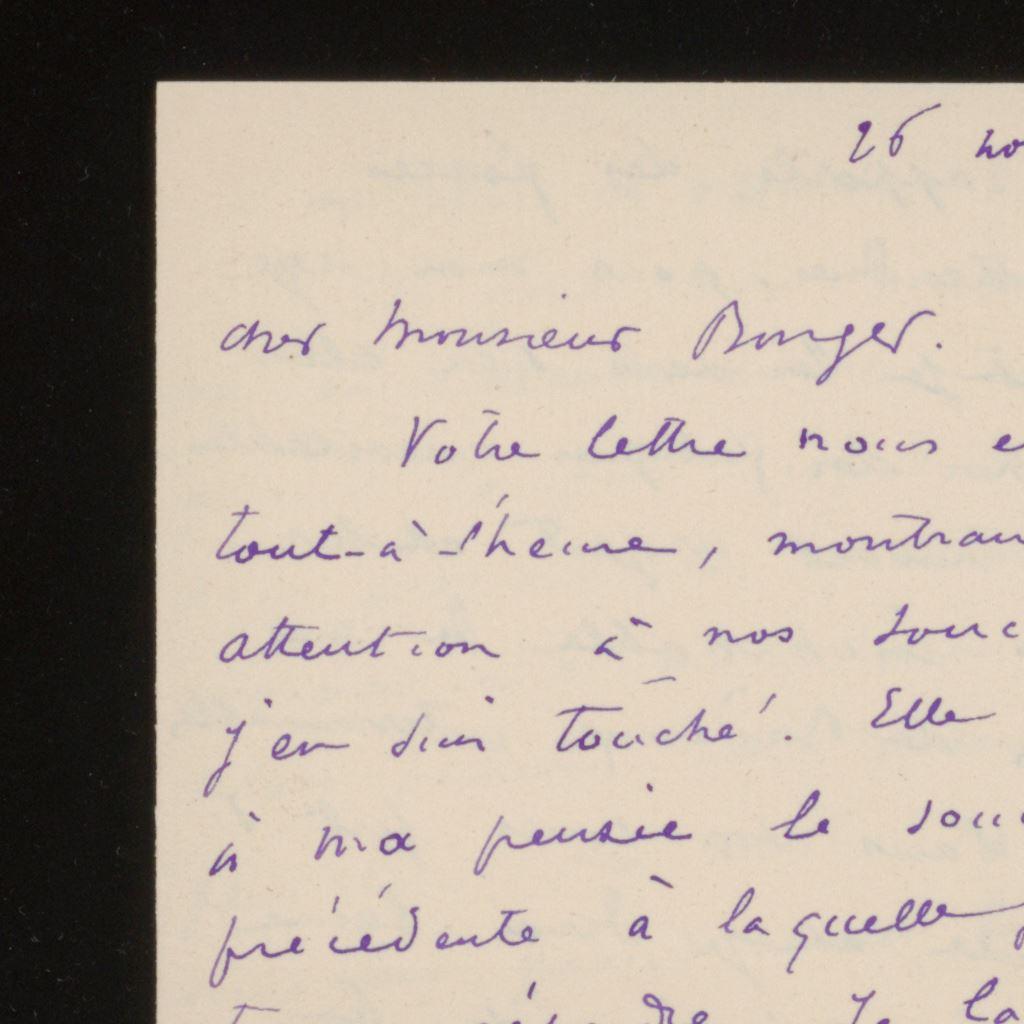 26 no
cher Monsieur Bonger.
Votre lettre nous e
tout-à-l'heure, montran
attention à nos souc
j'en suis touché. Elle
à ma pensée le sou
précédente à laquelle
Je la